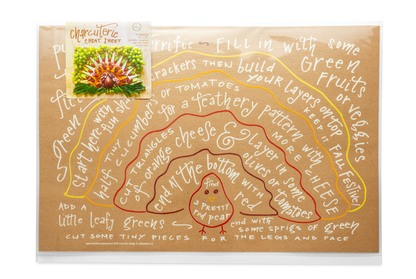 charcuterie
CHEAT SHEET
terrific
Fill in with some
Green fruits or veggies
Green
Start here with fun
crackers then build
your layers on top
KEEP IT FALL festive!
half tiny cucumbers or tomatoes
for a feathery pattern with
more cheese
triangles
of orange cheese &
layer in some
olives or tomatoes
end at the bottom with
red
find
a PRETTY
red pear
ADD A
little leafy greens
end with
some sprigs of green
CUT SOME TINY PIECES FOR THE LEGS AND FACE